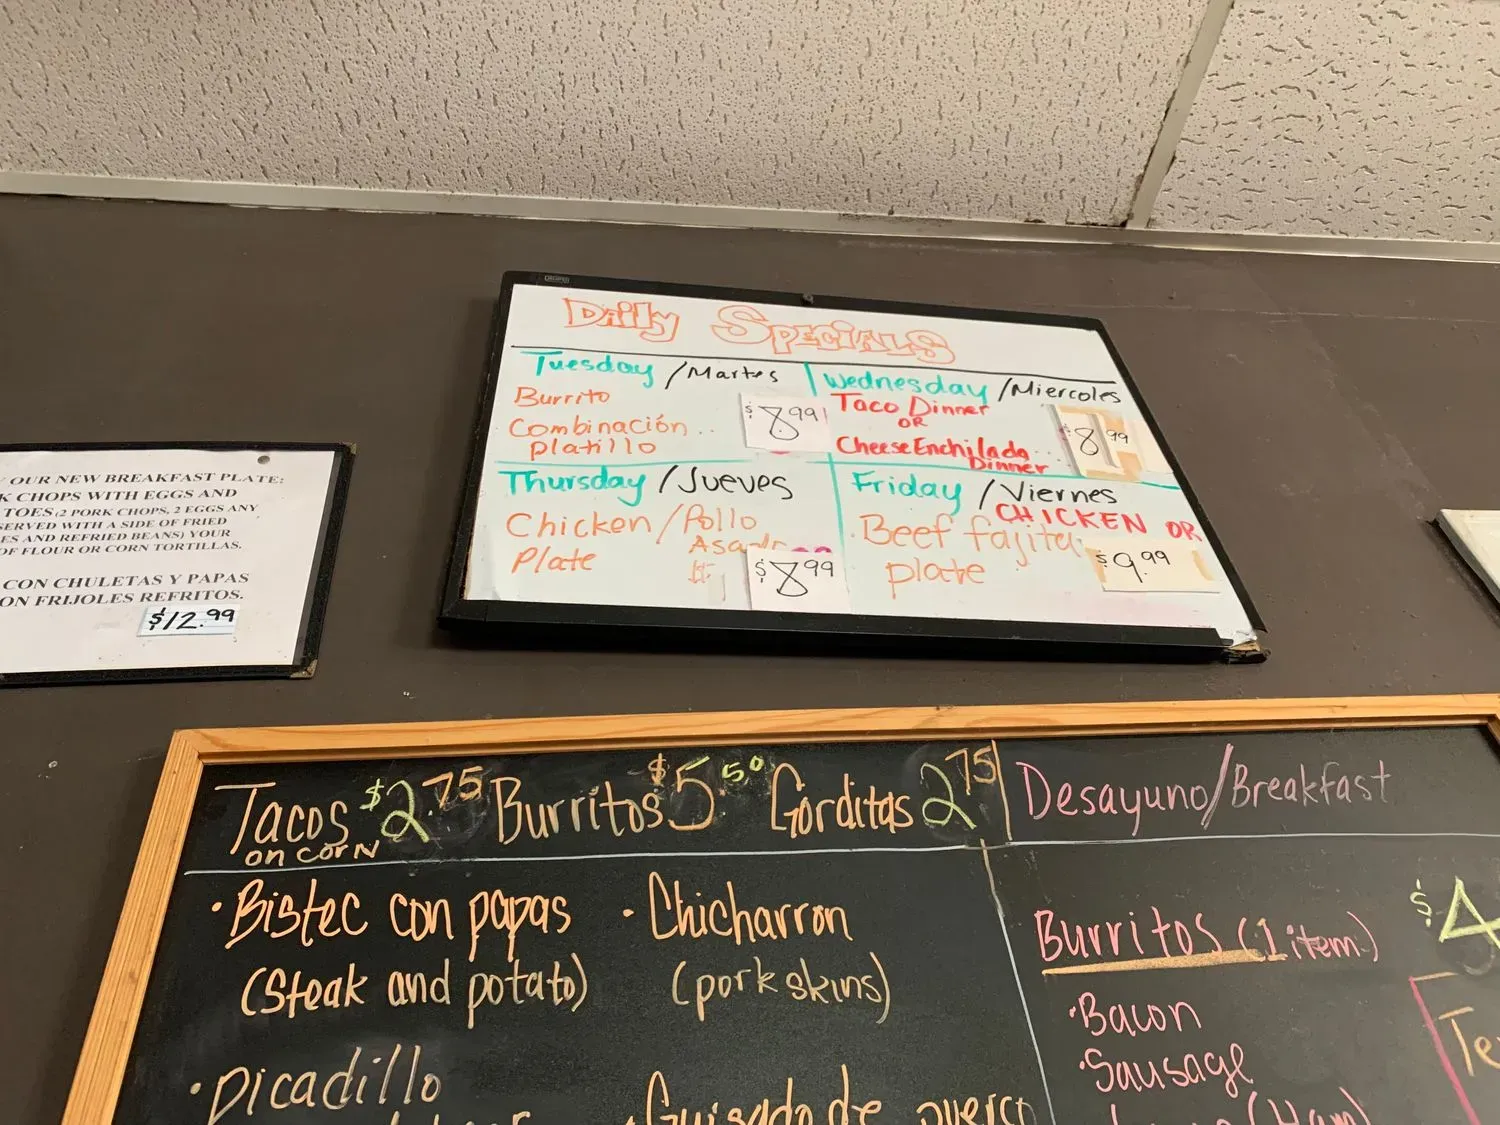 Daily Specials
Tuesday / Martes
Burrito
Combinación..
platillo
$8.99
Wednesday / Miercoles
Taco Dinner
OR
Cheese Enchilada...
Dinner
$8.99
Thursday / Jueves
Chicken / Pollo
Asado
Plate
$8.99
Friday / Viernes
CHICKEN OR
Beef fajita
plate
$9.99
OUR NEW BREAKFAST PLATE:
CHOPS WITH EGGS AND
TOES (2 PORK CHOPS, 2 EGGS ANY
SERVED WITH A SIDE OF FRIED
ES AND REFRIED BEANS) YOUR
OF FLOUR OR CORN TORTILLAS.
CON CHULETAS Y PAPAS
ON FRIJOLES REFRITOS.
$12.99
Tacos $2.75 Burritos $5.50 Gorditas 2.75
on corn
• Bistec con papas
(steak and potato)
• Picadillo
• Chicharron
(pork skins)
• Guisado de puerco
Desayuno/Breakfast
Burritos (1 item)
• Bacon
• Sausage
(Ham)
$4
Te